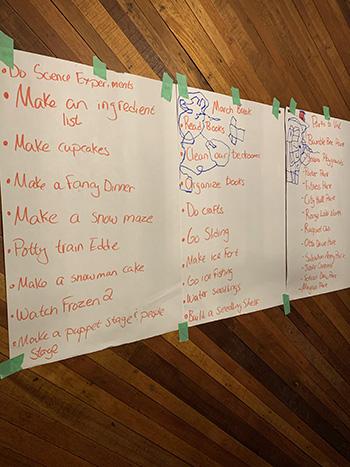 • Do Science Experiments
• Make an ingredient
list
• Make cupcakes
• Make a Fancy Dinner
• Make a snow maze
• Potty train Eddie
• Make a snowman cake
• Watch Frozen 2
• Make a puppet stage &
stage
March break
• Read Books
• Clean our bedrooms
• Organize books
• Do crafts
• Go Sliding
• Make ice fort
• Go ice fishing
• Water seedlings
• Build a seedling shelf
Parks to
• Bumble Bee
• Playground
• Fitness
• City Hall
• Racquet Club
• Otis Drive
• Salvation Army